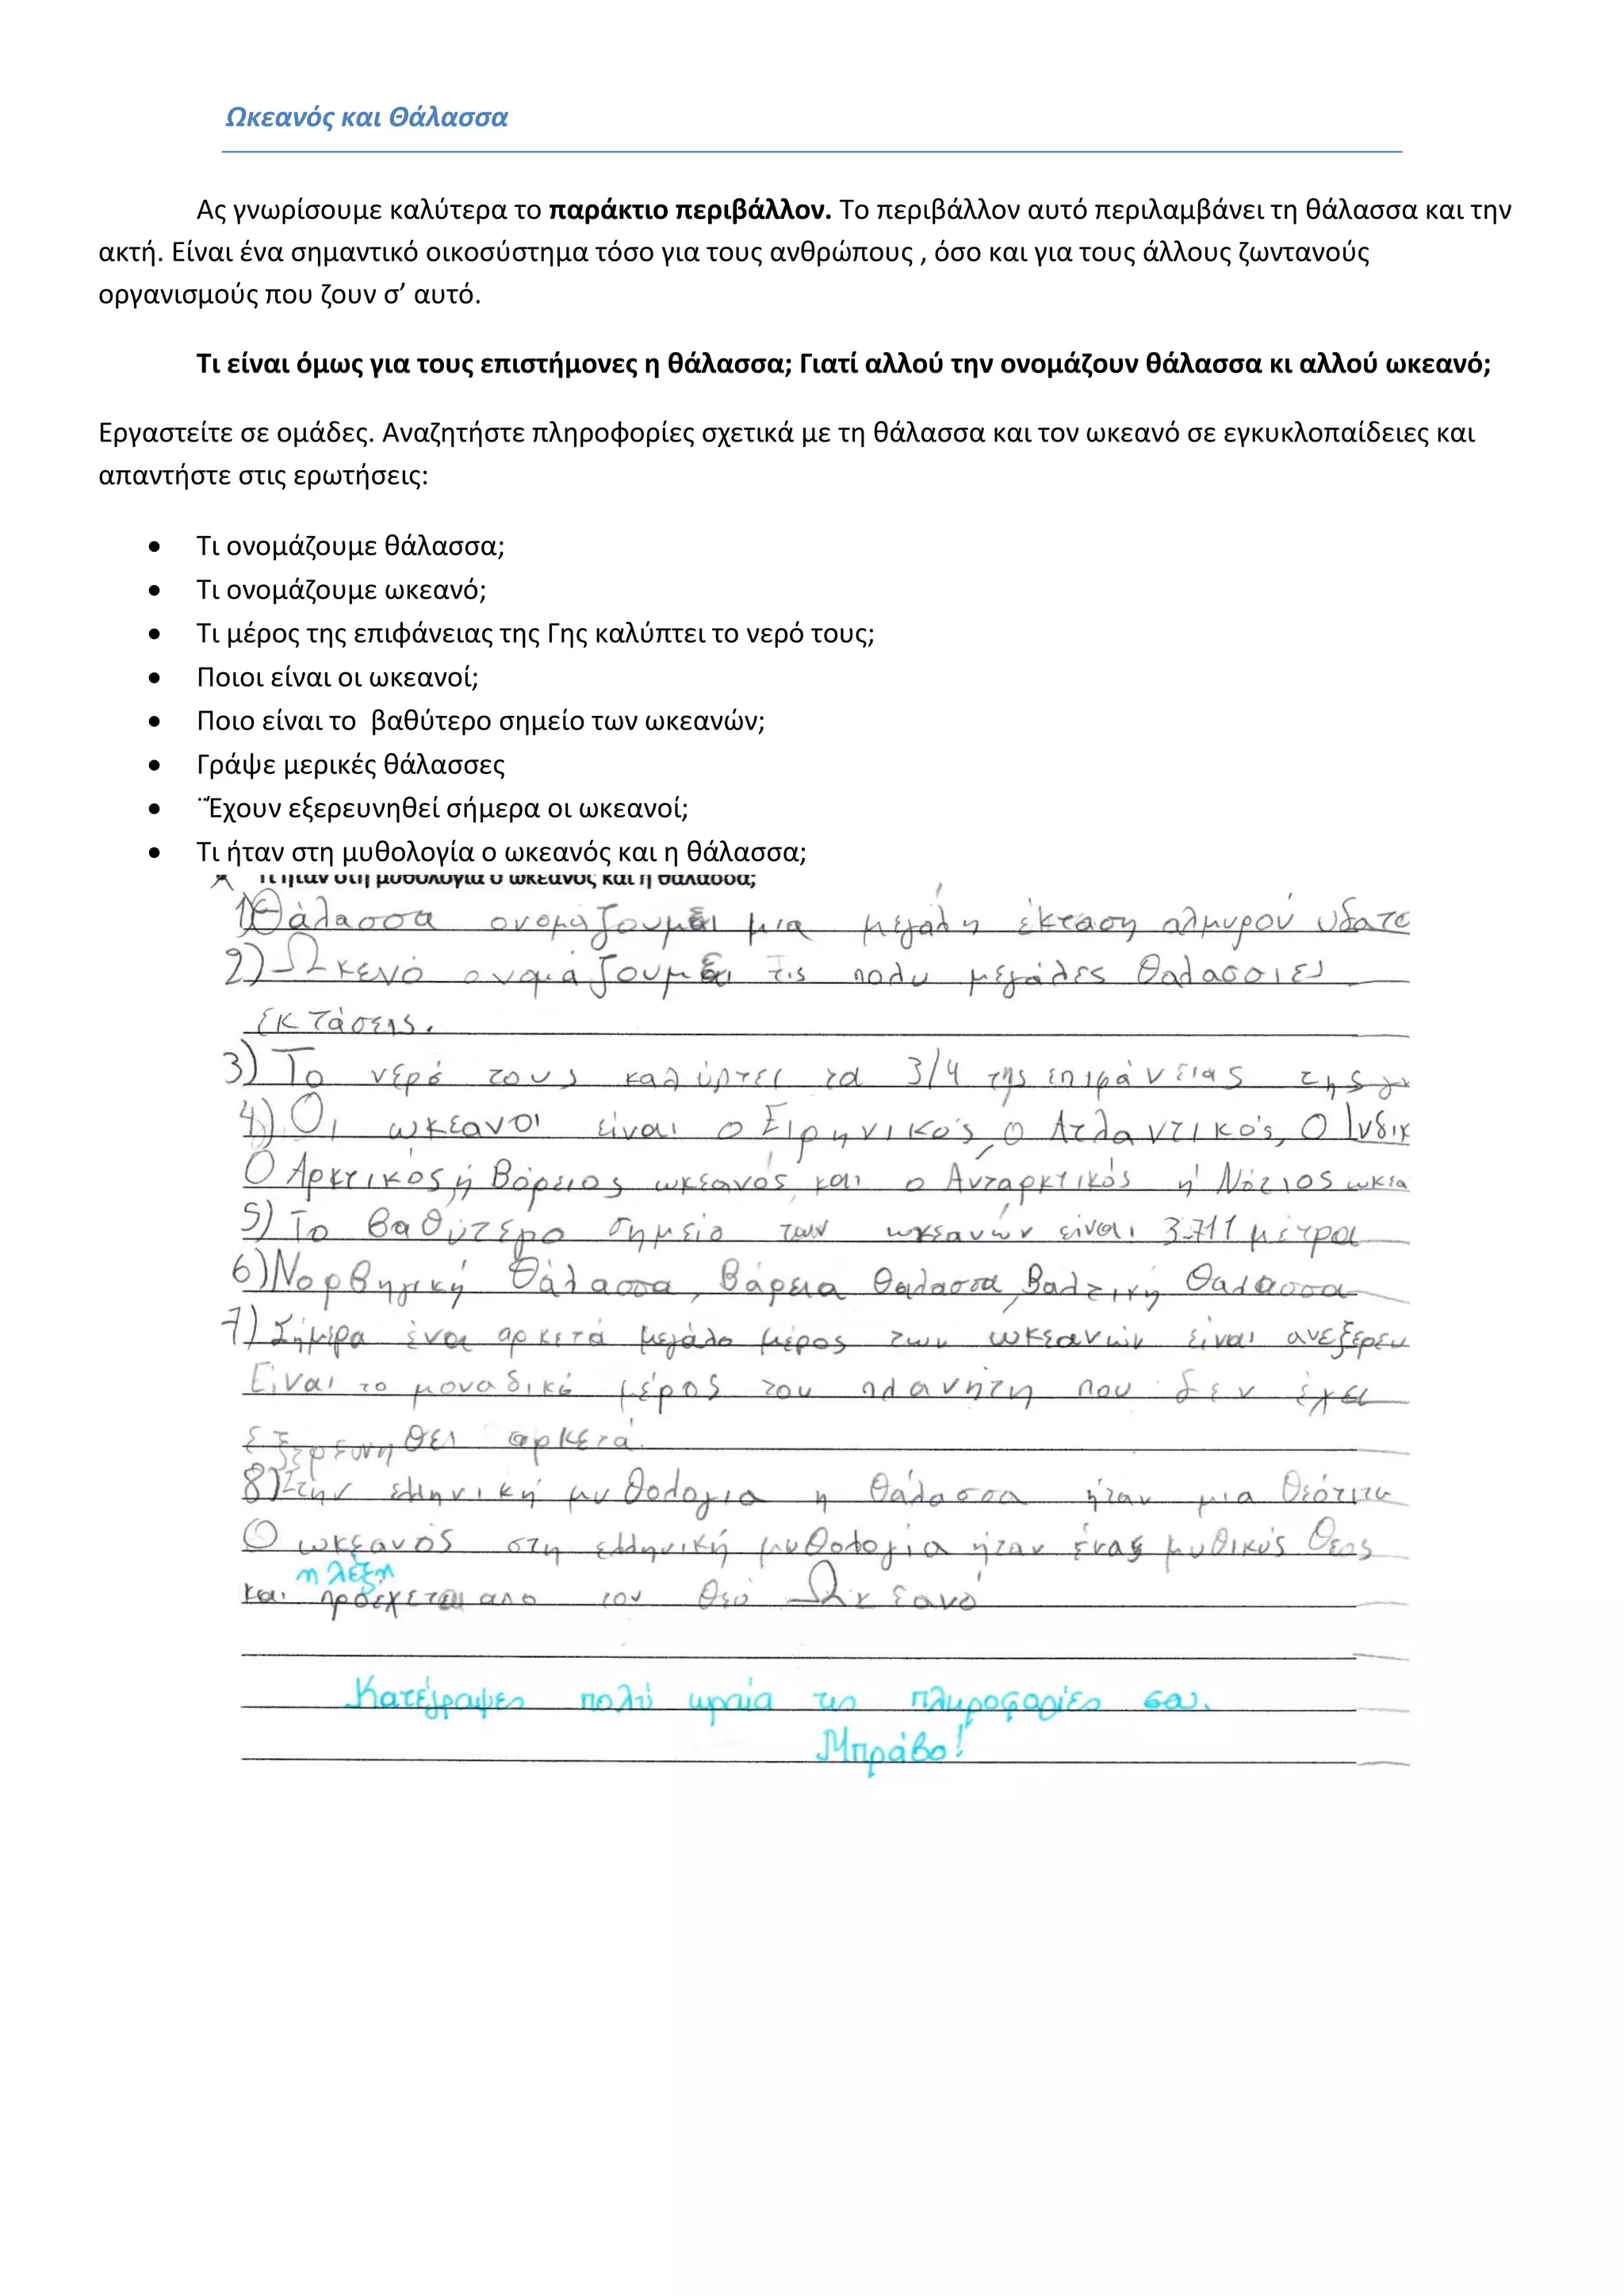 Ωκεανός και Θάλασσα
Ας γνωρίσουμε καλύτερα το παράκτιο περιβάλλον. Το περιβάλλον αυτό περιλαμβάνει τη θάλασσα και την
ακτή. Είναι ένα σημαντικό οικοσύστημα τόσο για τους ανθρώπους , όσο και για τους άλλους ζωντανούς
οργανισμούς που ζουν σ’ αυτό.
Τι είναι όμως για τους επιστήμονες η θάλασσα; Γιατί αλλού την ονομάζουν θάλασσα κι αλλού ωκεανό;
Εργαστείτε σε ομάδες. Αναζητήστε πληροφορίες σχετικά με τη θάλασσα και τον ωκεανό σε εγκυκλοπαίδειες και
απαντήστε στις ερωτήσεις:
• Τι ονομάζουμε θάλασσα;
• Τι ονομάζουμε ωκεανό;
• Τι μέρος της επιφάνειας της Γης καλύπτει το νερό τους;
• Ποιοι είναι οι ωκεανοί;
• Ποιο είναι το βαθύτερο σημείο των ωκεανών;
• Γράψε μερικές θάλασσες
• ¨Έχουν εξερευνηθεί σήμερα οι ωκεανοί;
• Τι ήταν στη μυθολογία ο ωκεανός και η θάλασσα;
Τι ήταν στη μυθολογία ο ωκεανός και η θάλασσα;
1) Θάλασσα ονομάζουμε μια μεγάλη έκταση αλμυρού υδατο
2) Ωκενό ονομάζουμε τις πολυ μεγάλες θαλασσιες
εκτάσεις.
3) Το νερό τους καλύπτει τα 3/4 της επιφάνειας της γ
4) Οι ωκεανοι είναι ο Ειρηνικός, ο Ατλαντικός, Ο Ινδικ
Ο Αρκτικός ή Βόρειος ωκεανός και ο Ανταρκτικός ή Νότιος ωκεα
5) Το βαθύτερο σημείο των ωκεανών είναι 3.711 μέτρα
6) Νορβηγική θάλασσα, Βόρεια θαλασσα, Βαλτική θαλασσα
7) Σήμερα ένα αρκετά μεγάλο μέρος των ωκεανών είναι ανεξερευ
Είναι το μοναδικό μέρος του πλανήτη που δεν έχει
εξερευνηθει αρκετά.
8) Στην ελληνική μυθολογια η θάλασσα ήταν μια θεότητα
Ο ωκεανός στη ελληνική μυθολογία ήταν ένας μυθικός θεος
η λέξη
και προέχεται απο τον θεό Ωκεανό
Κατέγραψες πολύ ωραία τις πληροφορίες σου.
Μπράβο!